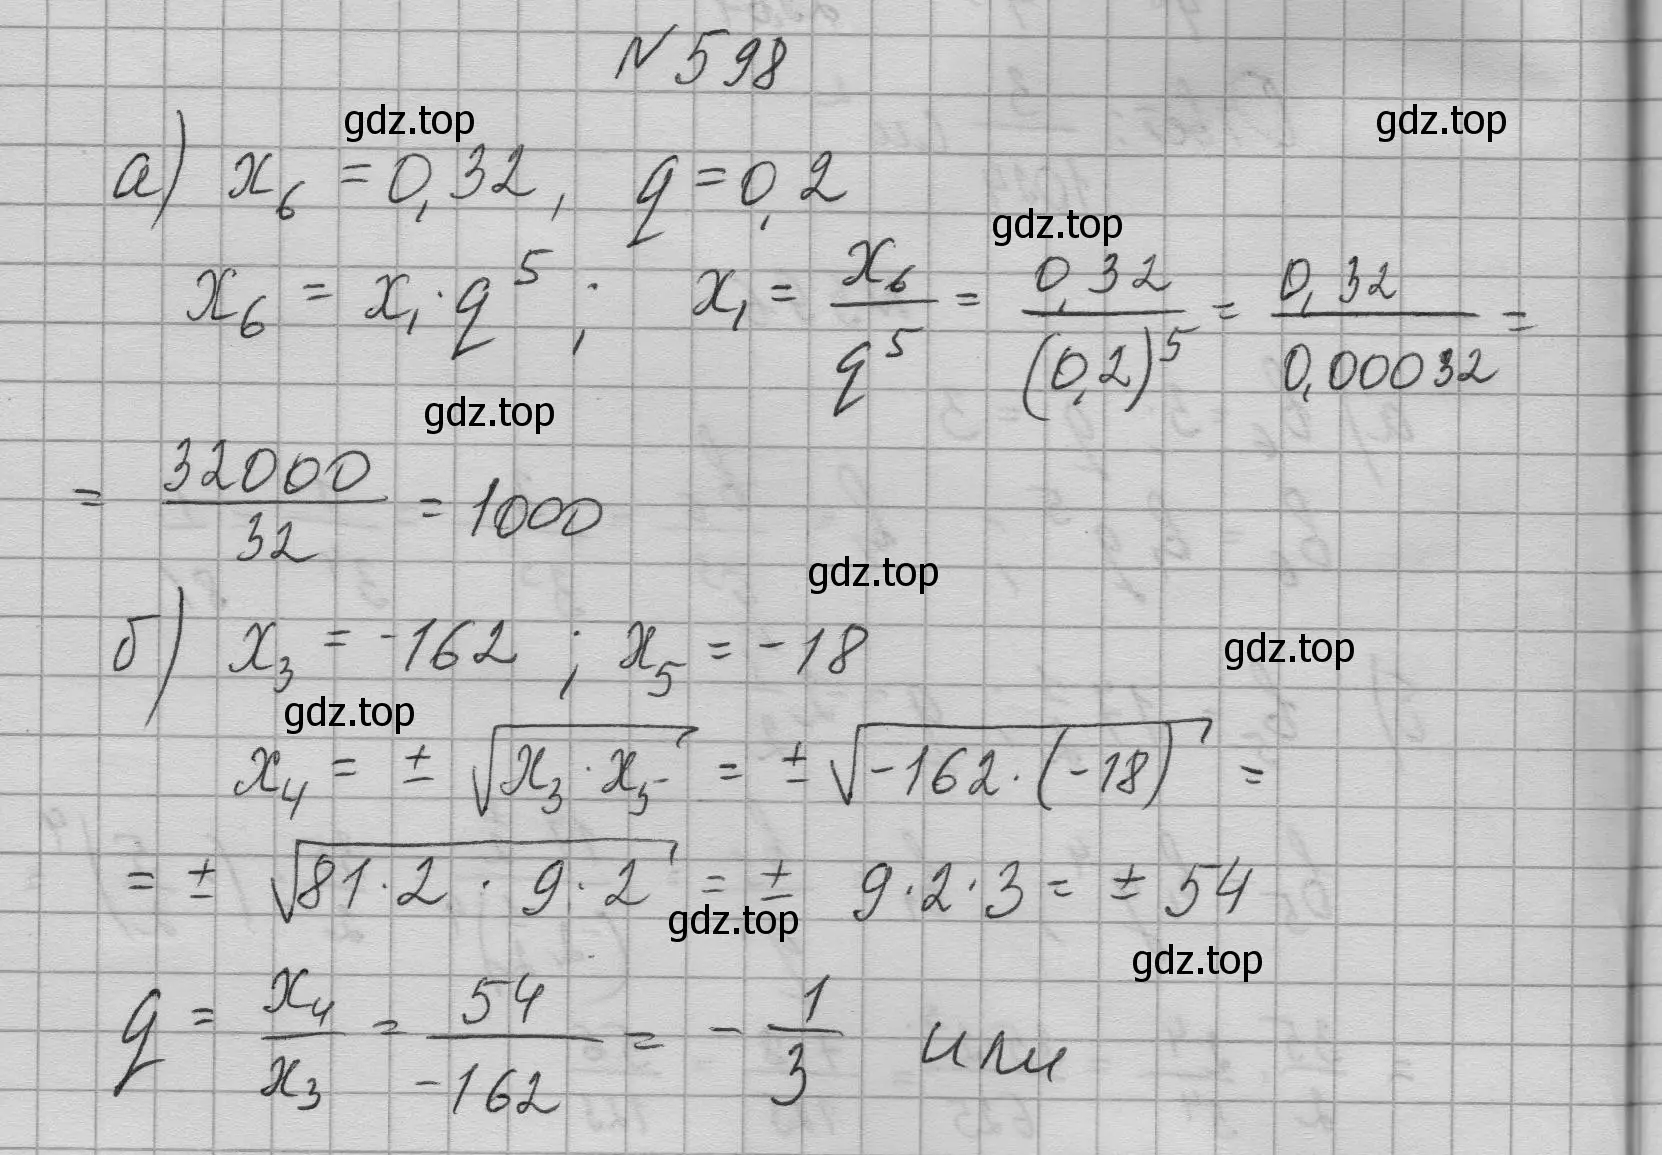 N 598
gdz.top
gdz.top
а) x₆ = 0,32, q = 0,2
gdz.top
x₆ = x₁ · q⁵; x₁ = x₆/q⁵ = 0,32/(0,2)⁵ = 0,32/0,00032 =
gdz.top
= 32000/32 = 1000
gdz.top
б) x₃ = -162 ; x₅ = -18
gdz.top
gdz.top
x₄ = ± √(x₃ · x₅) = ± √(-162 · (-18)) =
= ± √(81 · 2 · 9 · 2) = ± 9 · 2 · 3 = ± 54
gdz.top
gdz.top
q = x₄/x₃ = 54/-162 = - 1/3 или